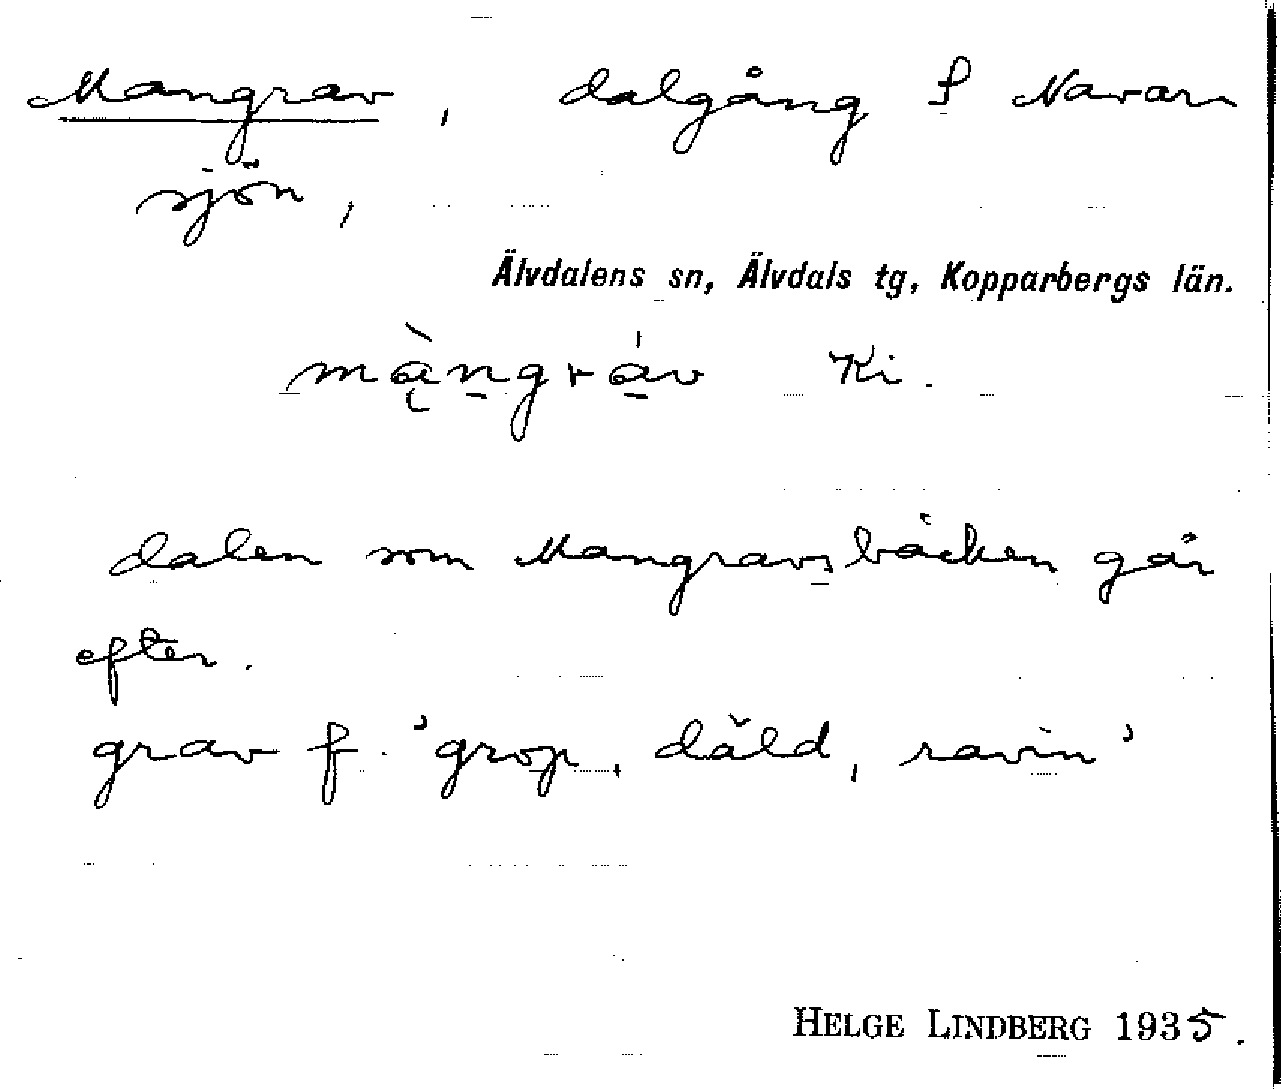 Mangrav, dalgång S Navar
sjön,
Älvdalens sn, Älvdals tg, Kopparbergs län.
mą̀n̠grá̠v Ki.
dalen som Mangravsbäcken går
efter.
grav f. 'grop, däld, ravin'
HELGE LINDBERG 1935.